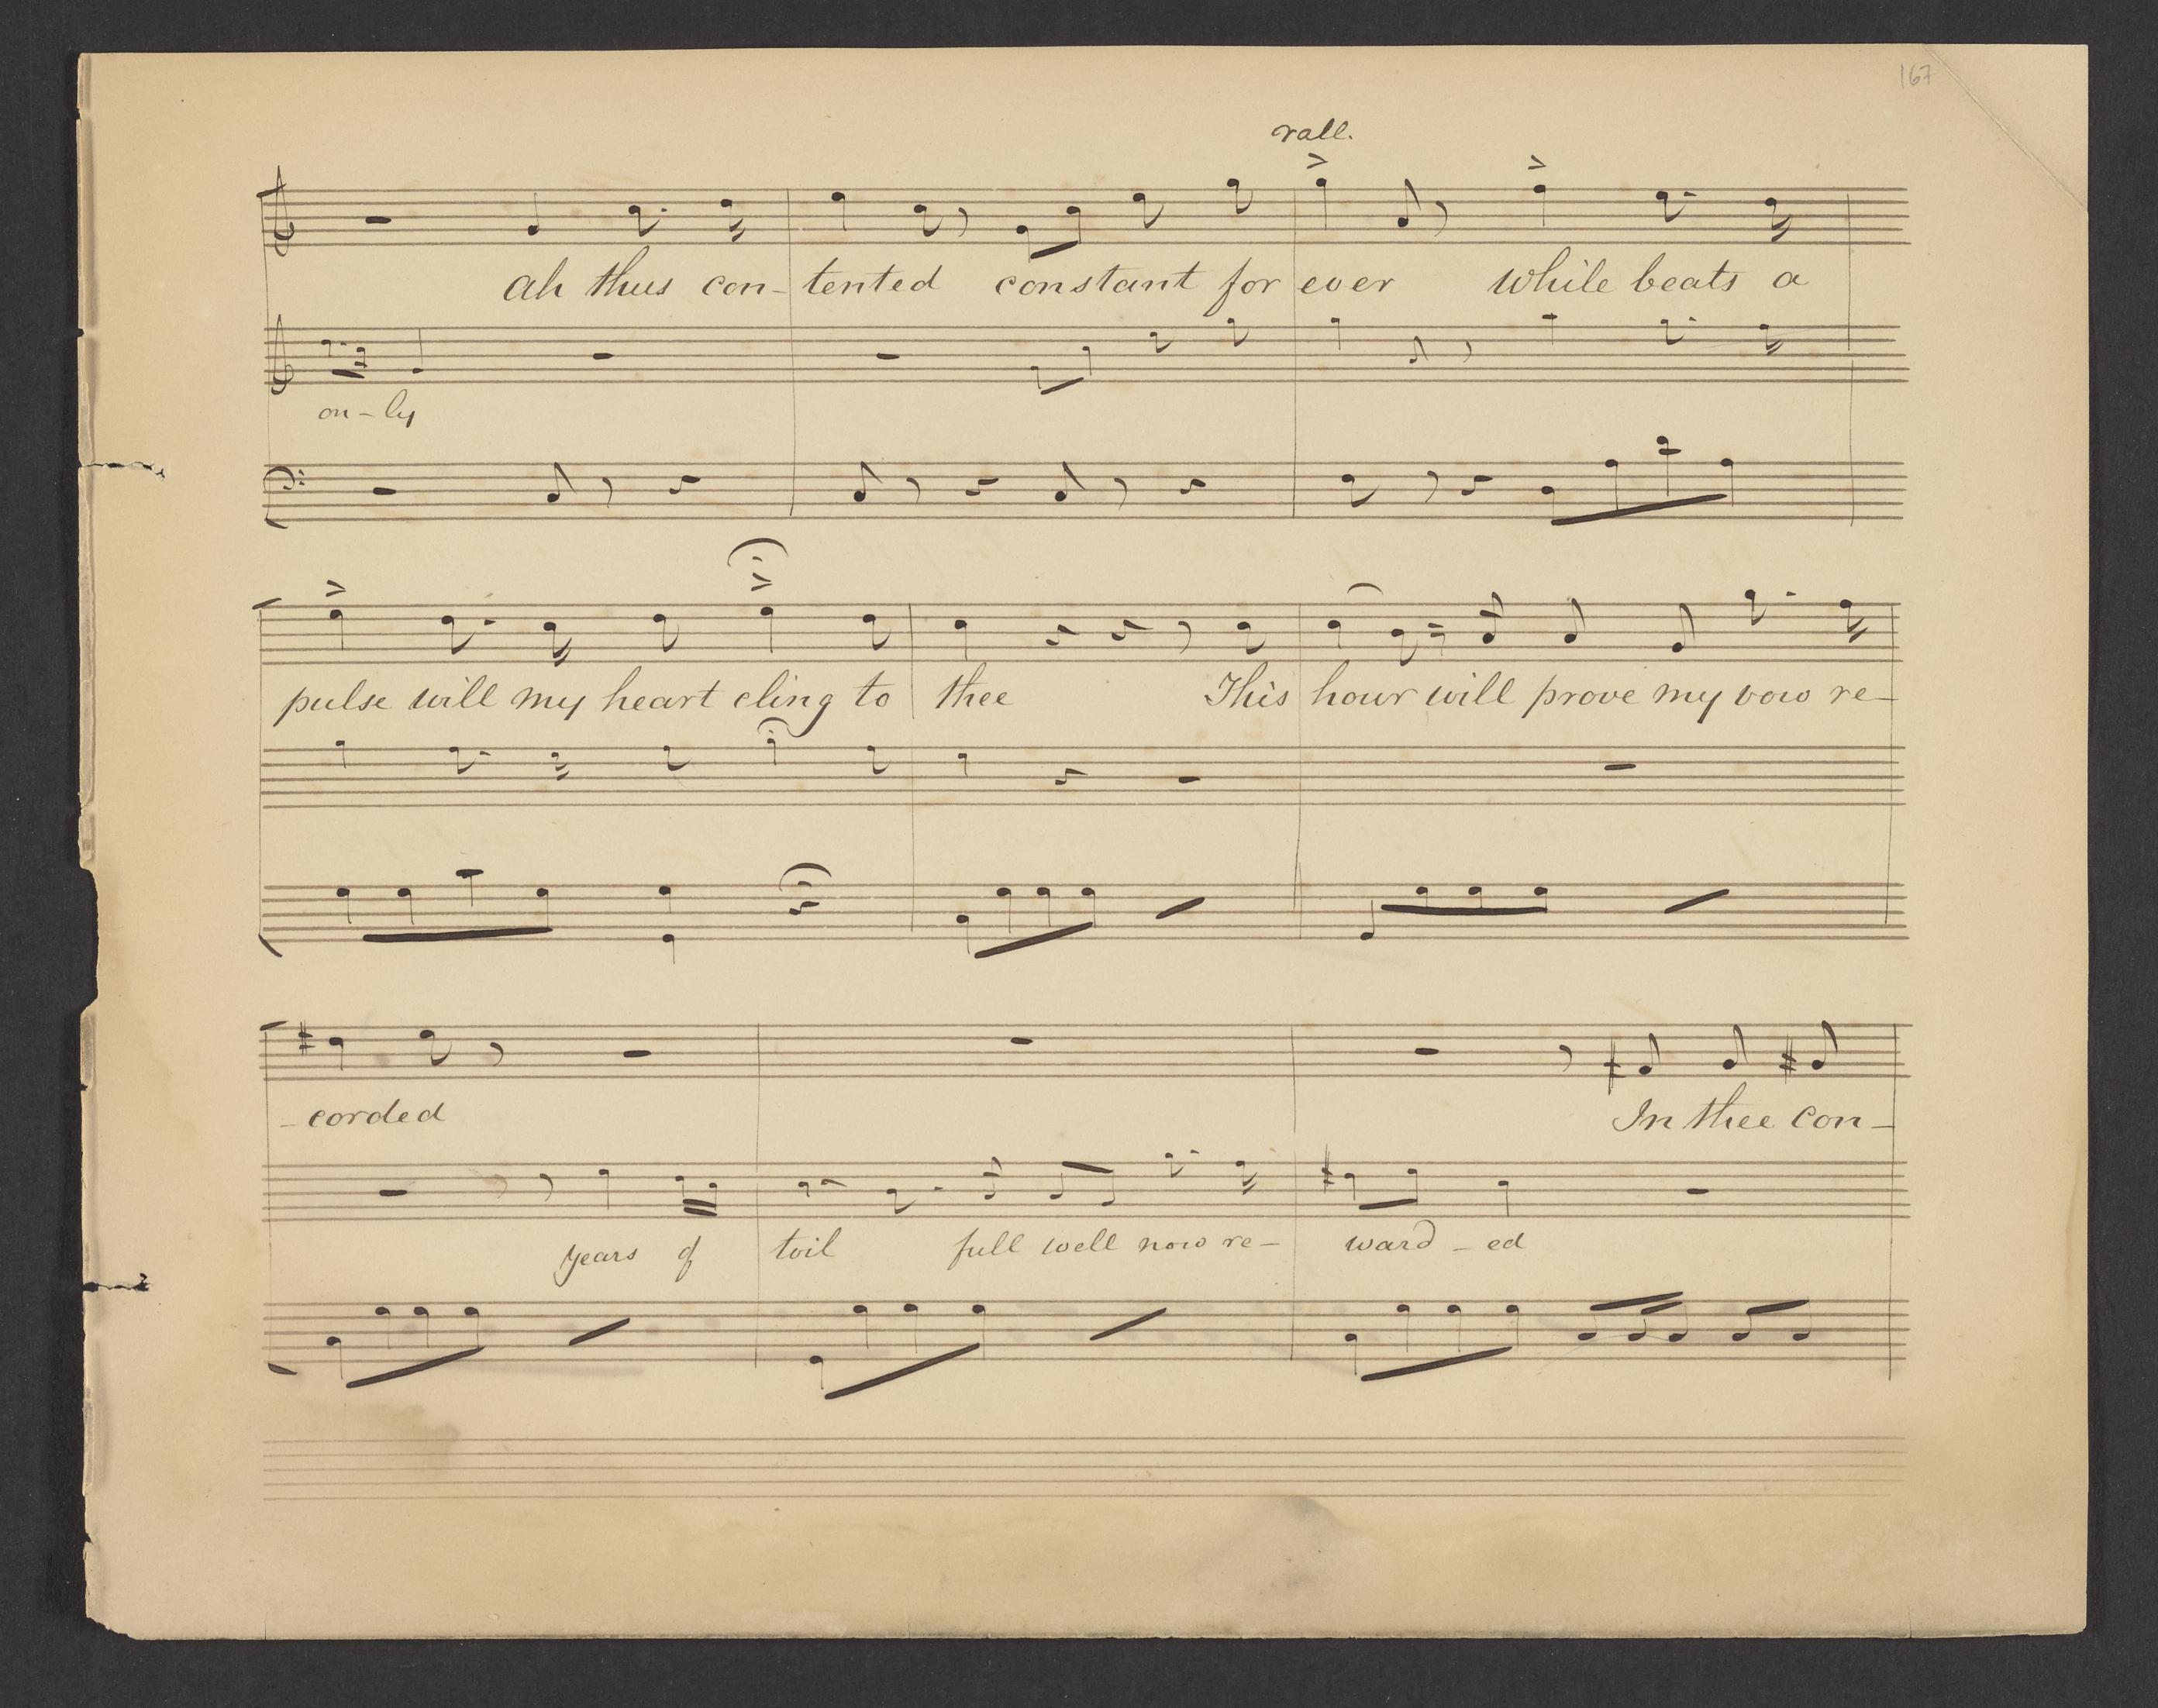 167
rall.
Ah thus con- tented constant for ever while beats a
on-ly
pulse will my heart cling to thee This hour will prove my vow re-
-corded In thee con-
years of toil full well now re- ward-ed